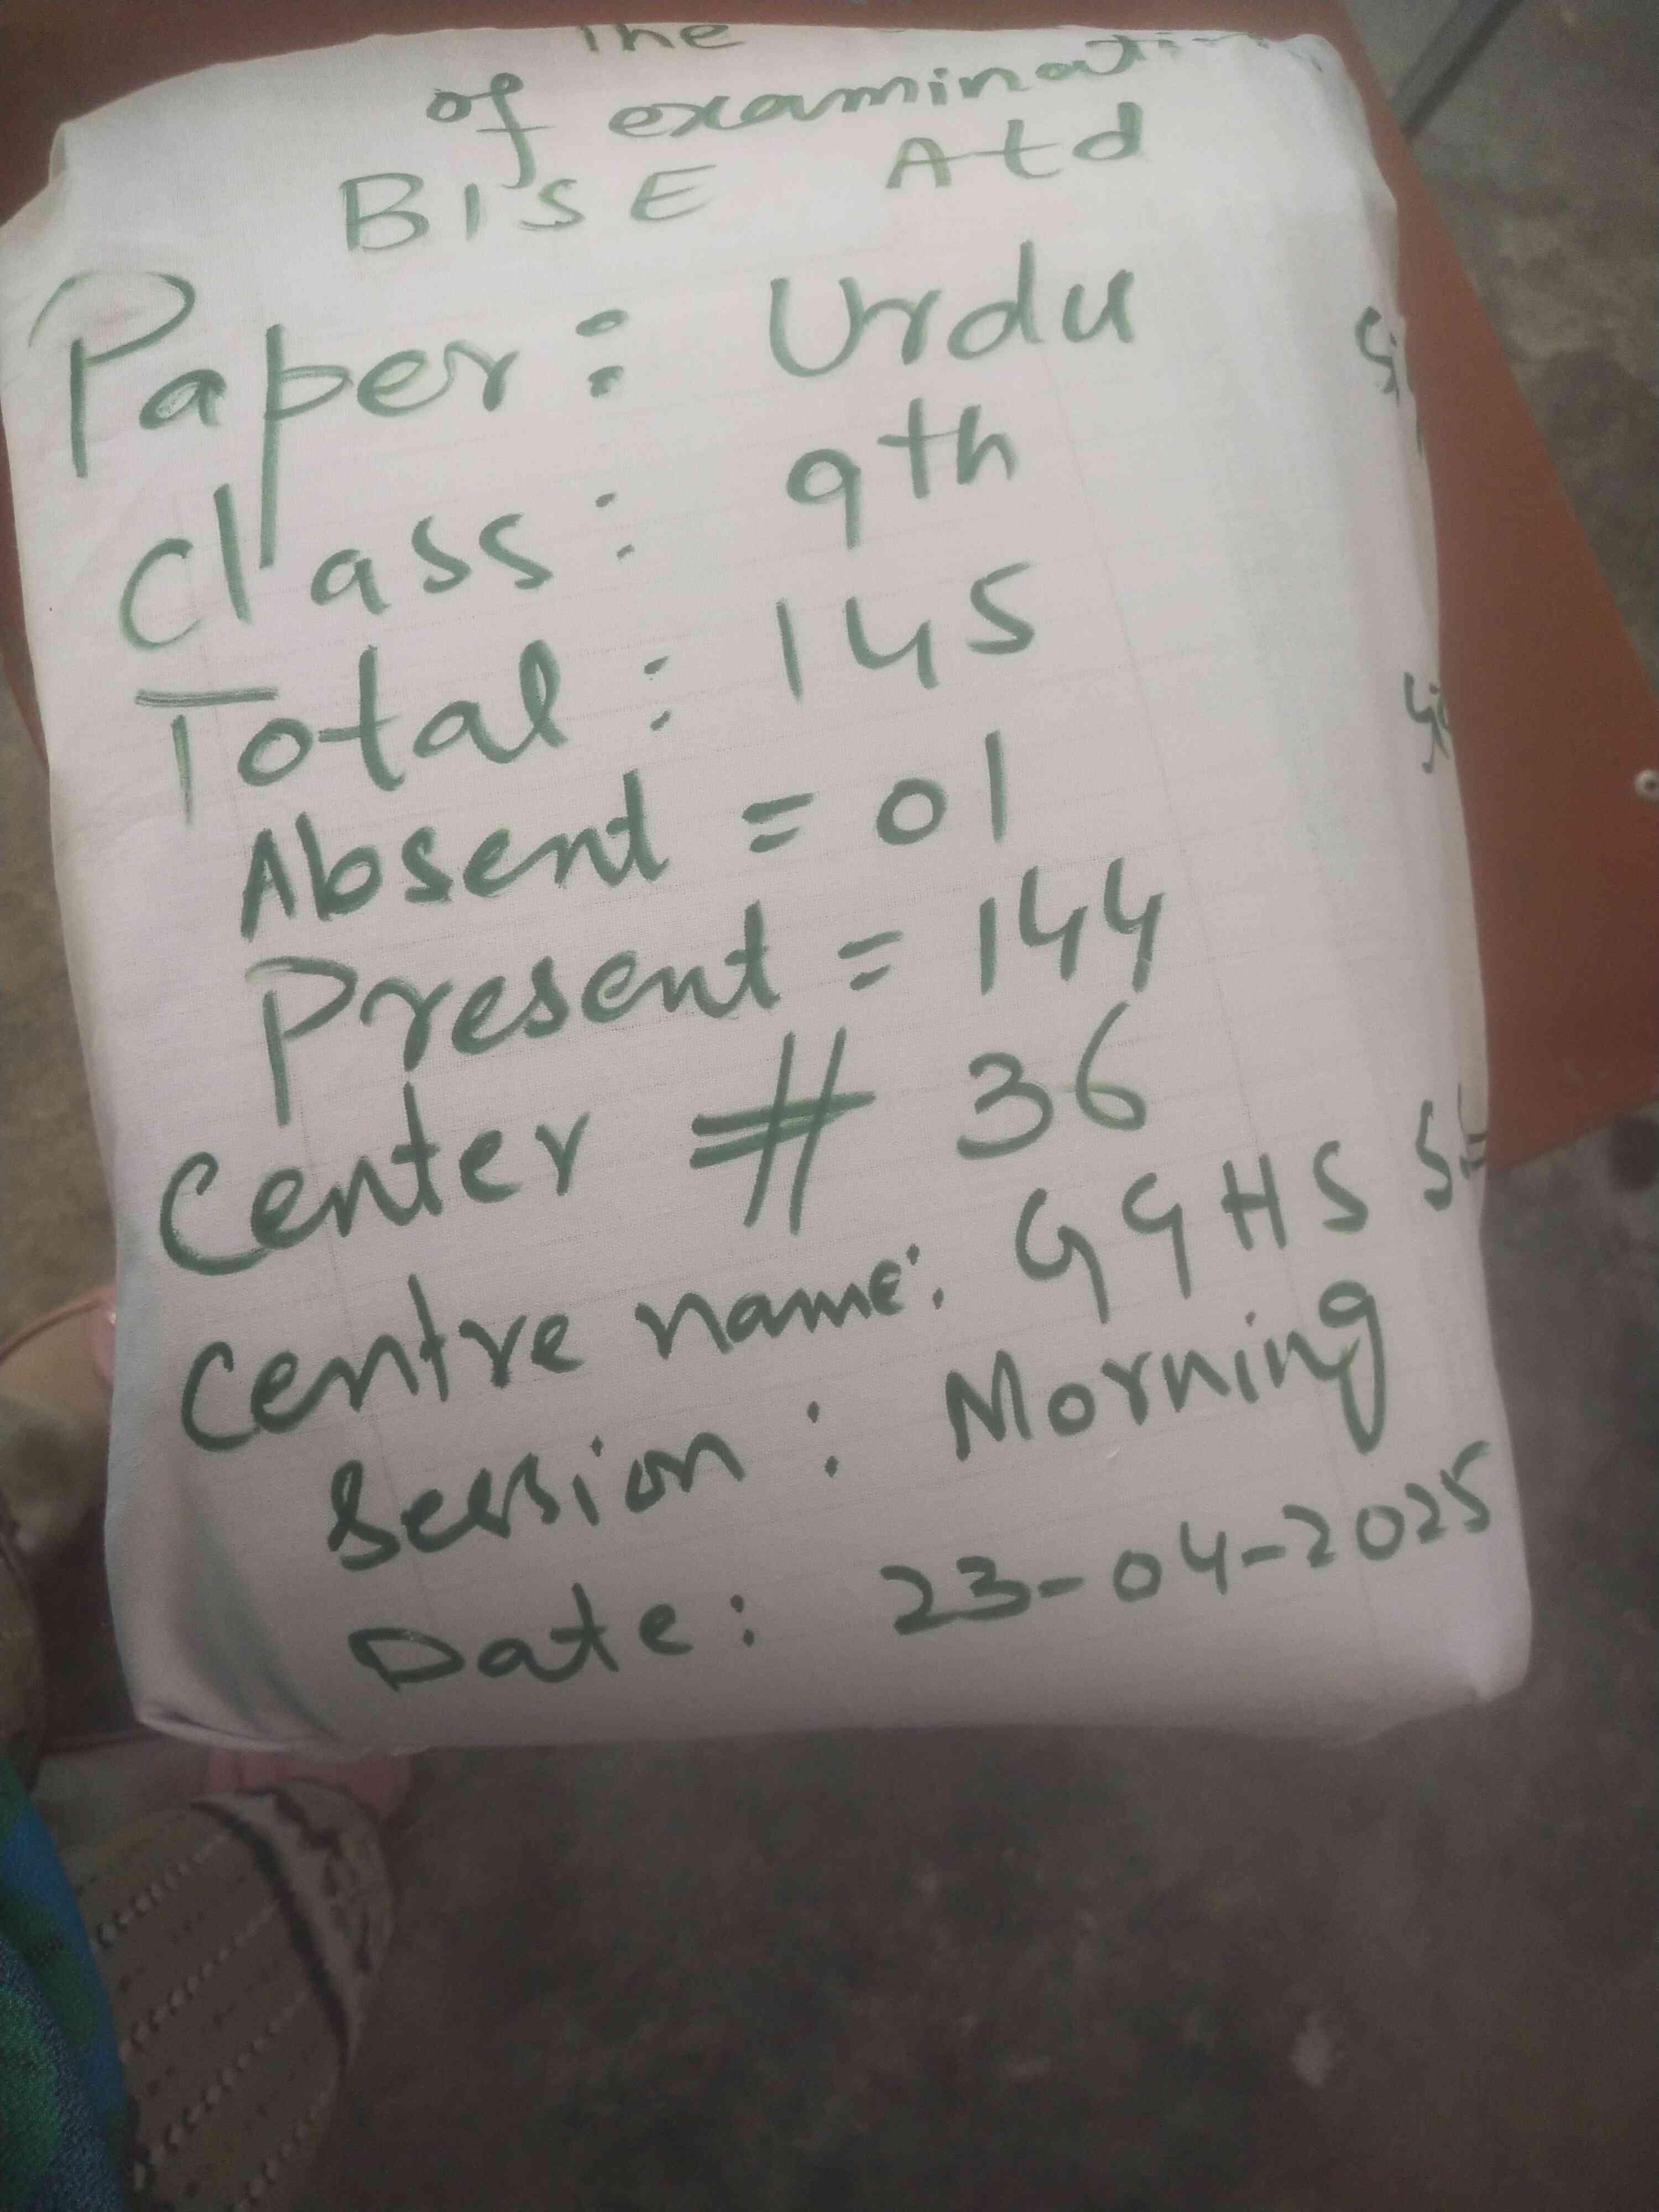 The
of examinati
BISE Atd
Paper: Urdu
Class: 9th
Total: 145
Absent = 01
Present = 144
Center # 36
Centre name: GGHS
Session: Morning
Date: 23-04-2025